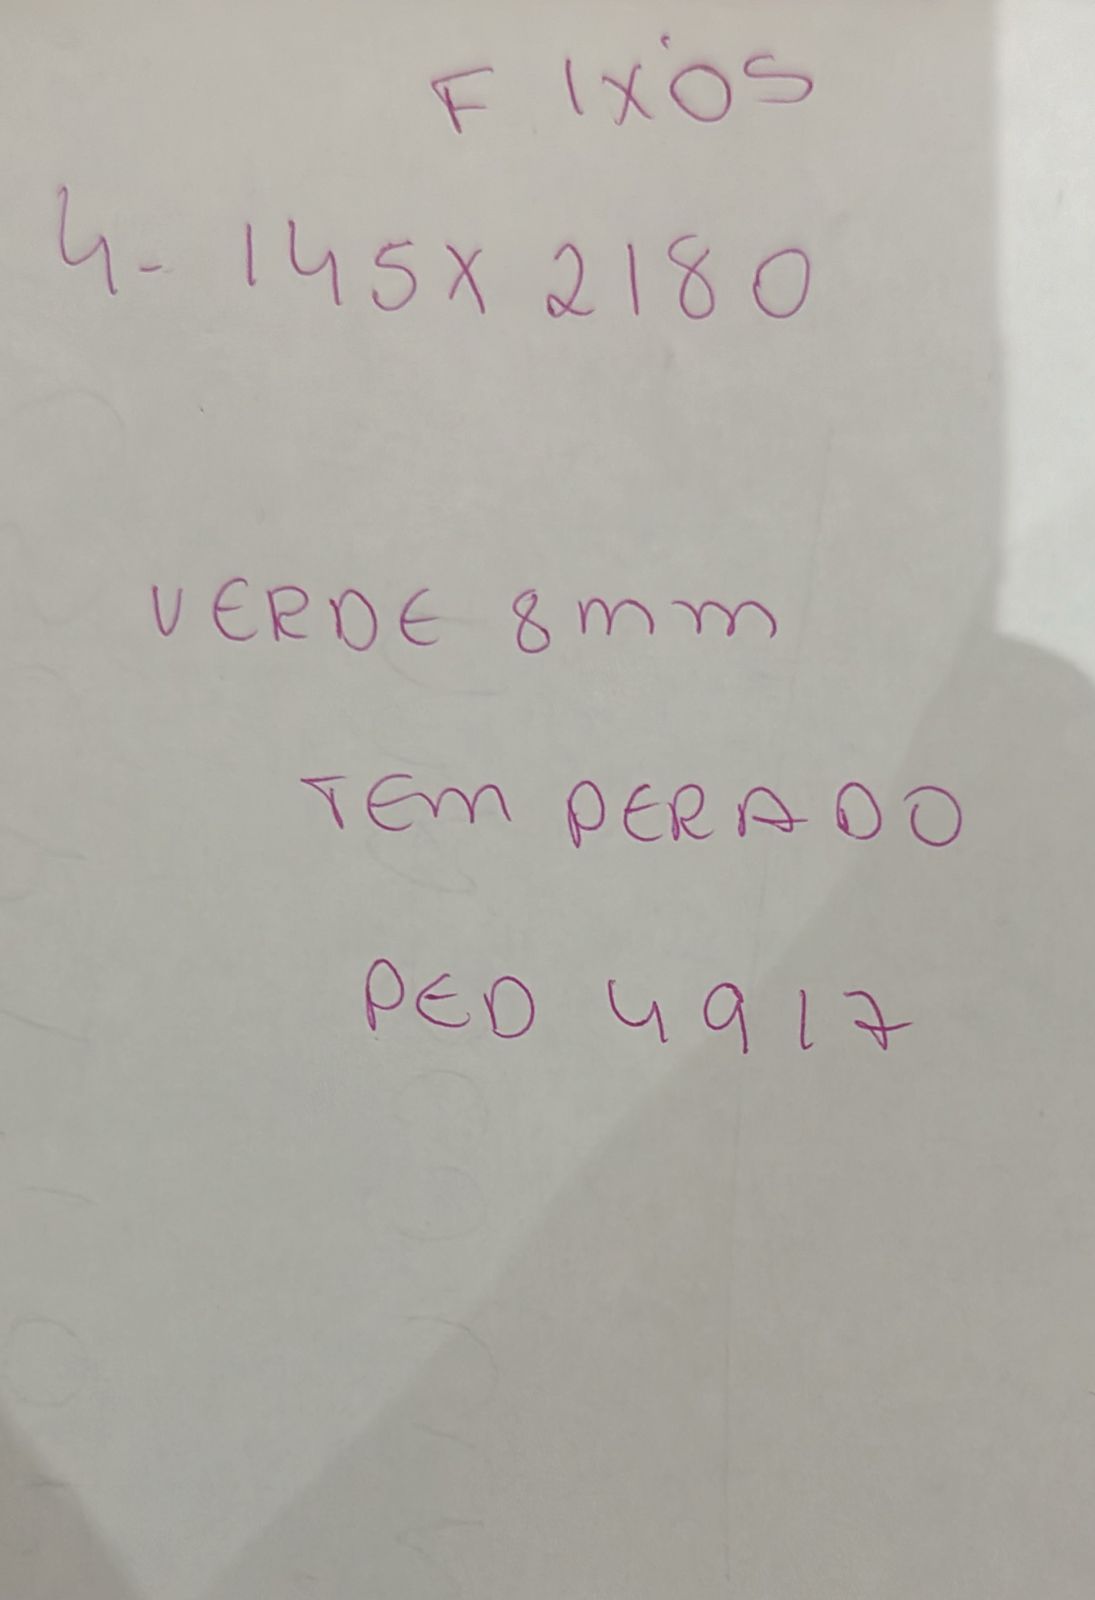 FIXOS
4- 145X 2180
VERDE 8mm
TEMPERADO
PED 4917